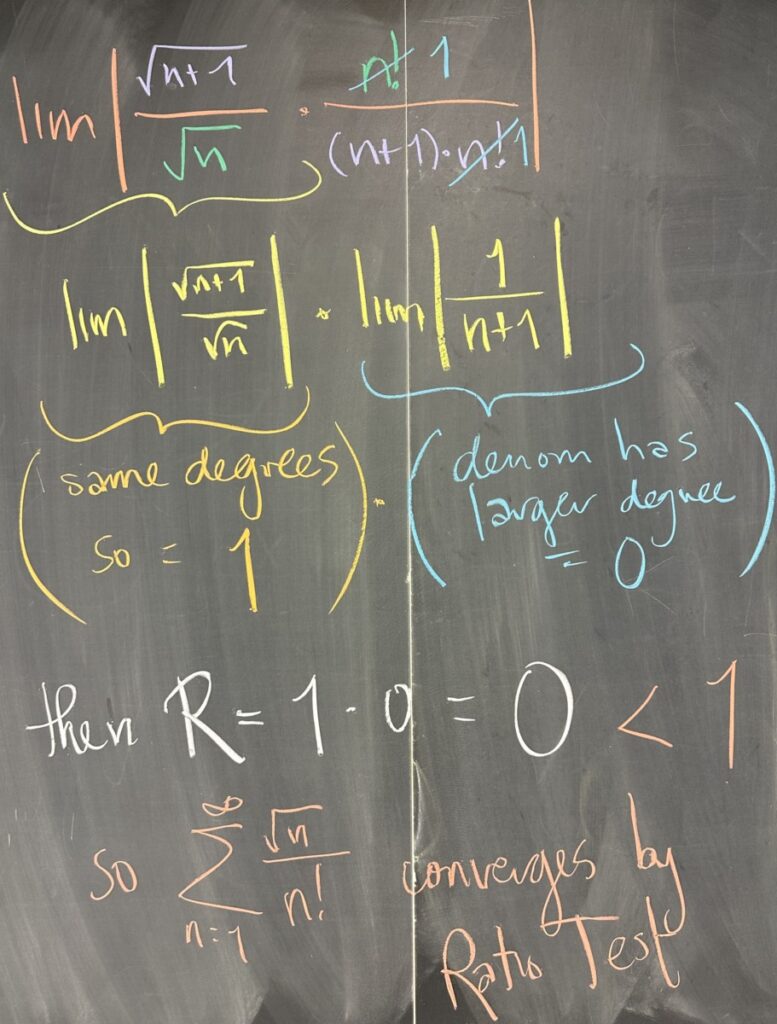 lim | √n+1 / √n · n! 1 / (n+1)·n! 1 |
lim | √n+1 / √n | · lim | 1 / n+1 |
(same degrees so = 1) · (denom has larger degree = 0)
then R = 1 · 0 = 0 < 1
so ∞ ∑ n=1 √n / n! converges by
Ratio Test